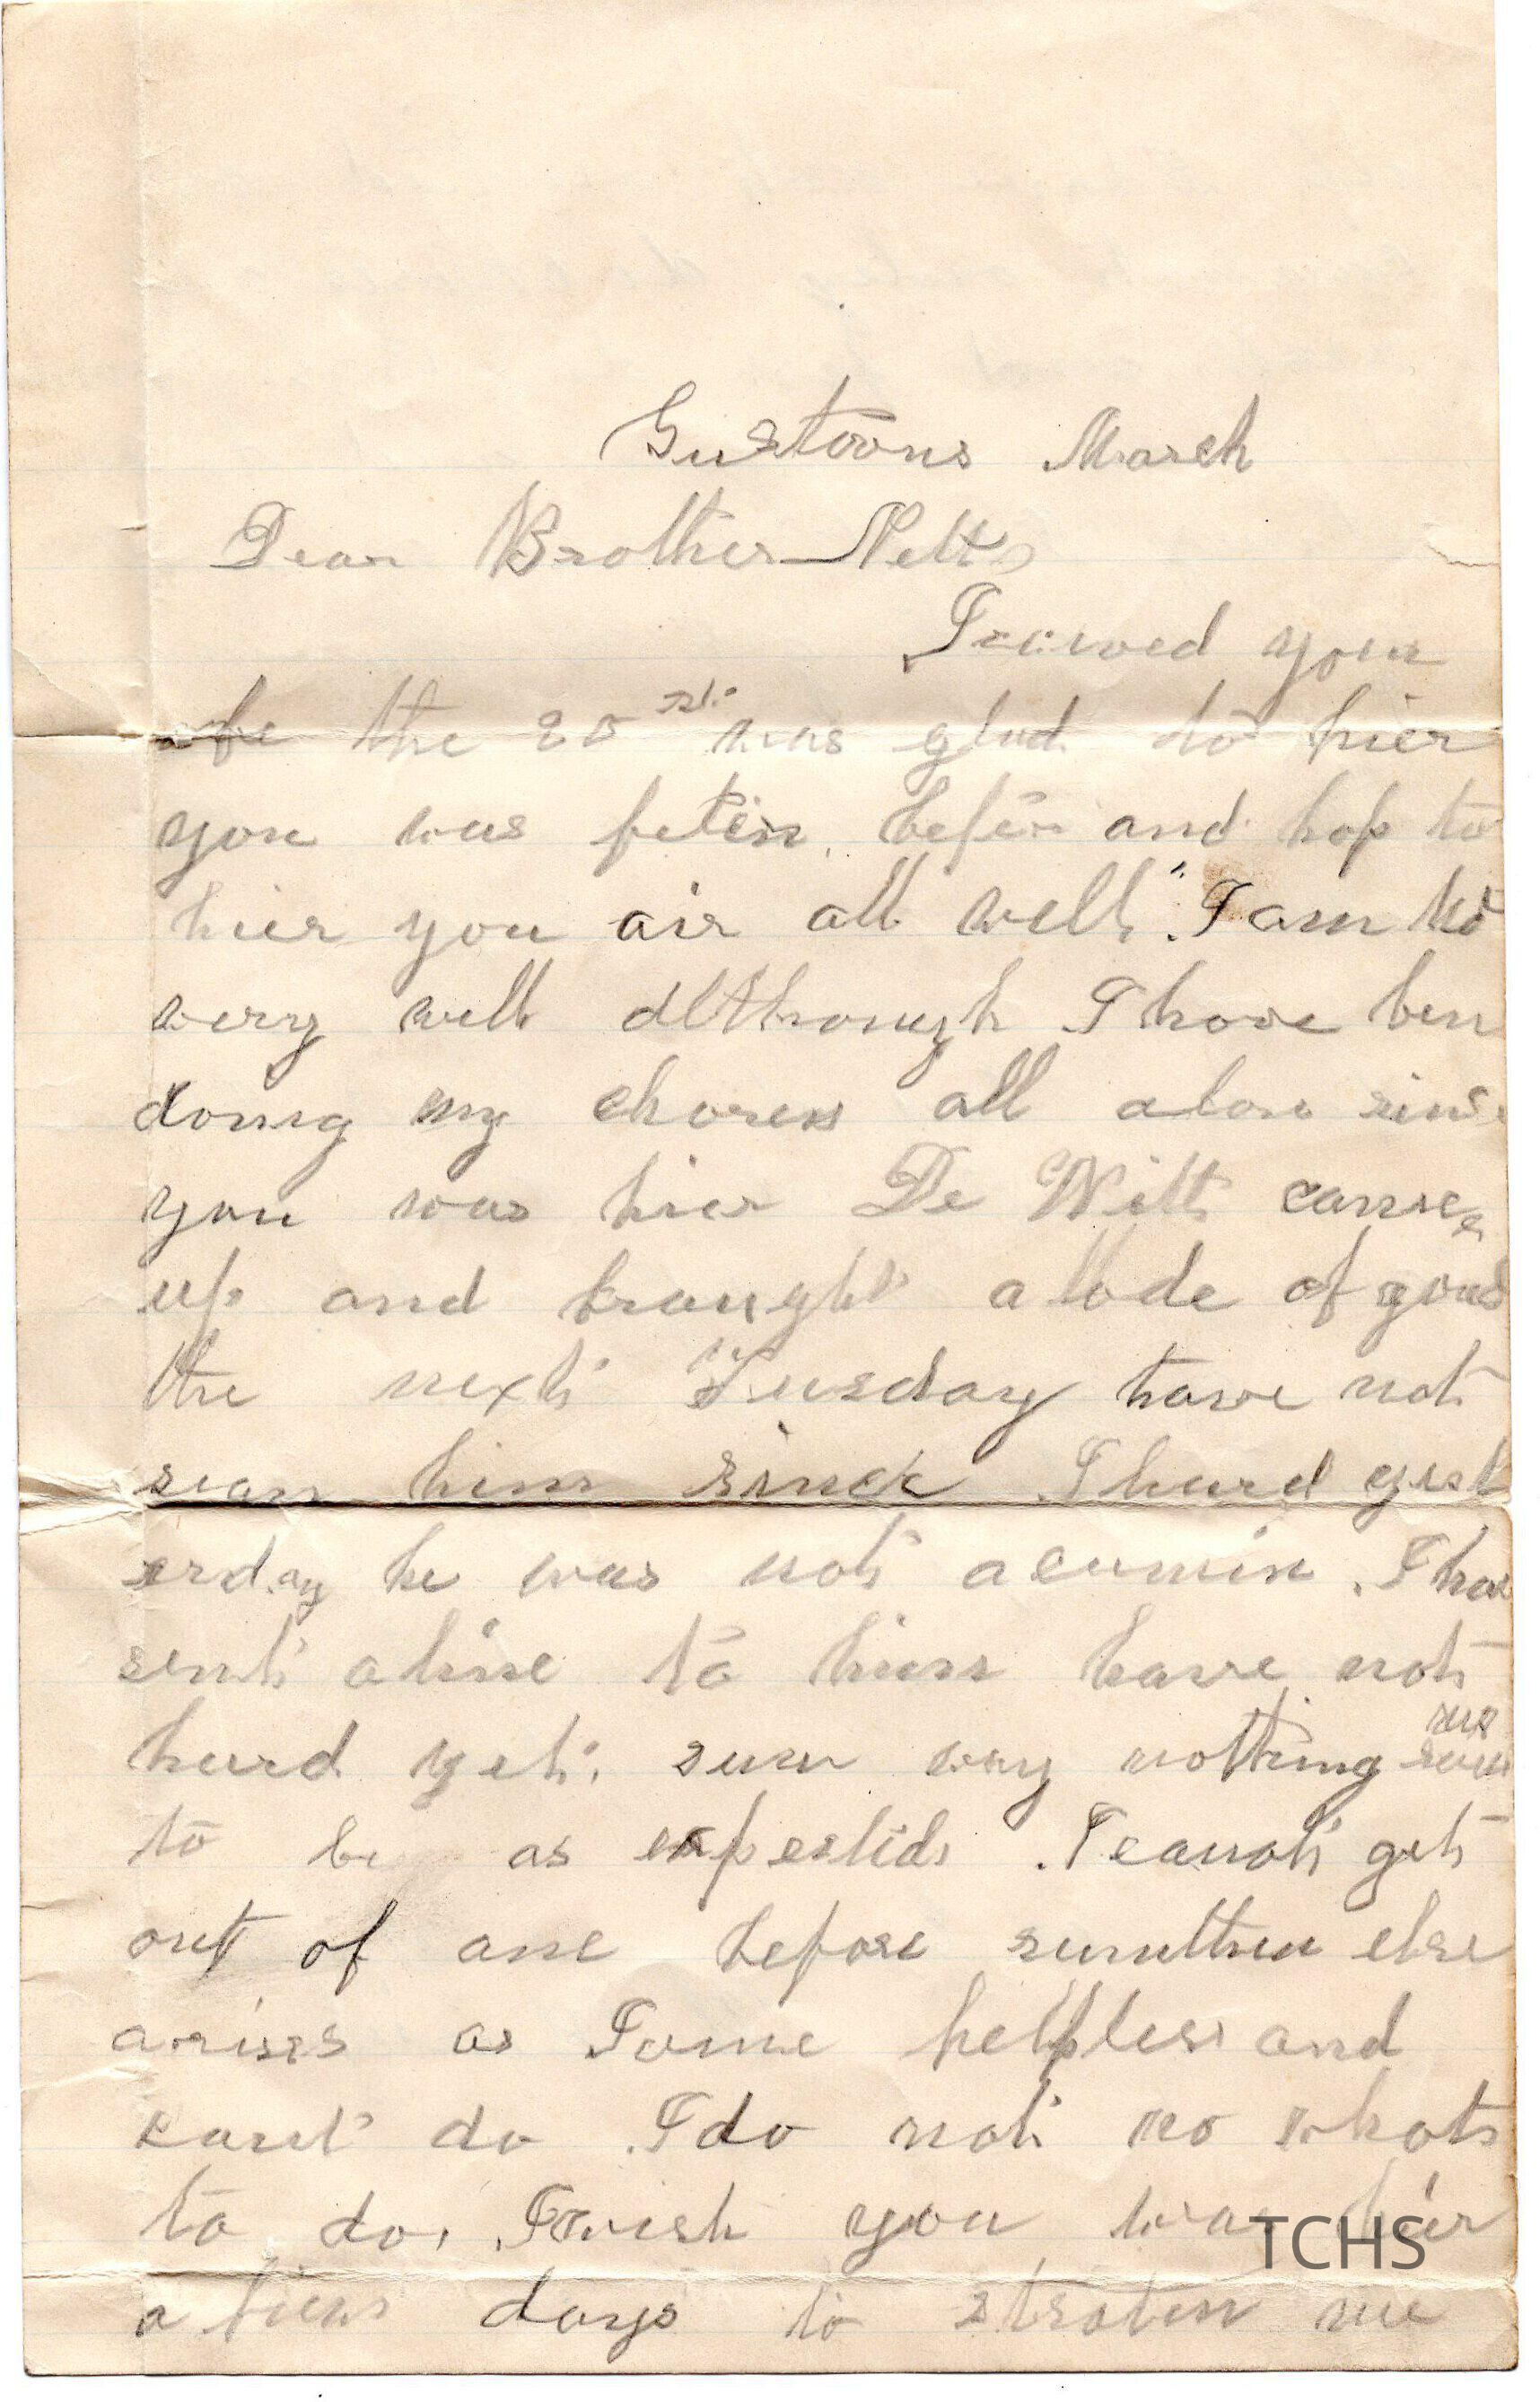 Gustoons March
Dear Brother Pelts
I recived your
of the 25 was glad to hier
you was beter befor and hop to
hier you air all well". I am no
very well althrough I have ben
doing my chores all alone since
you was hier De Witt came
up and braught a lode of goods
the next Tusday have not
sean him since I hurd yest
erday he was not a cumin. I have
sent a line to him have not
hurd yet. sum way nothing
to be as expestid. I canot get
out of one before sumthen else
arises as I ame helpless and
cant do I do not no whot
to do. I wish you was hier
a fiew days to stroten me
TCHS